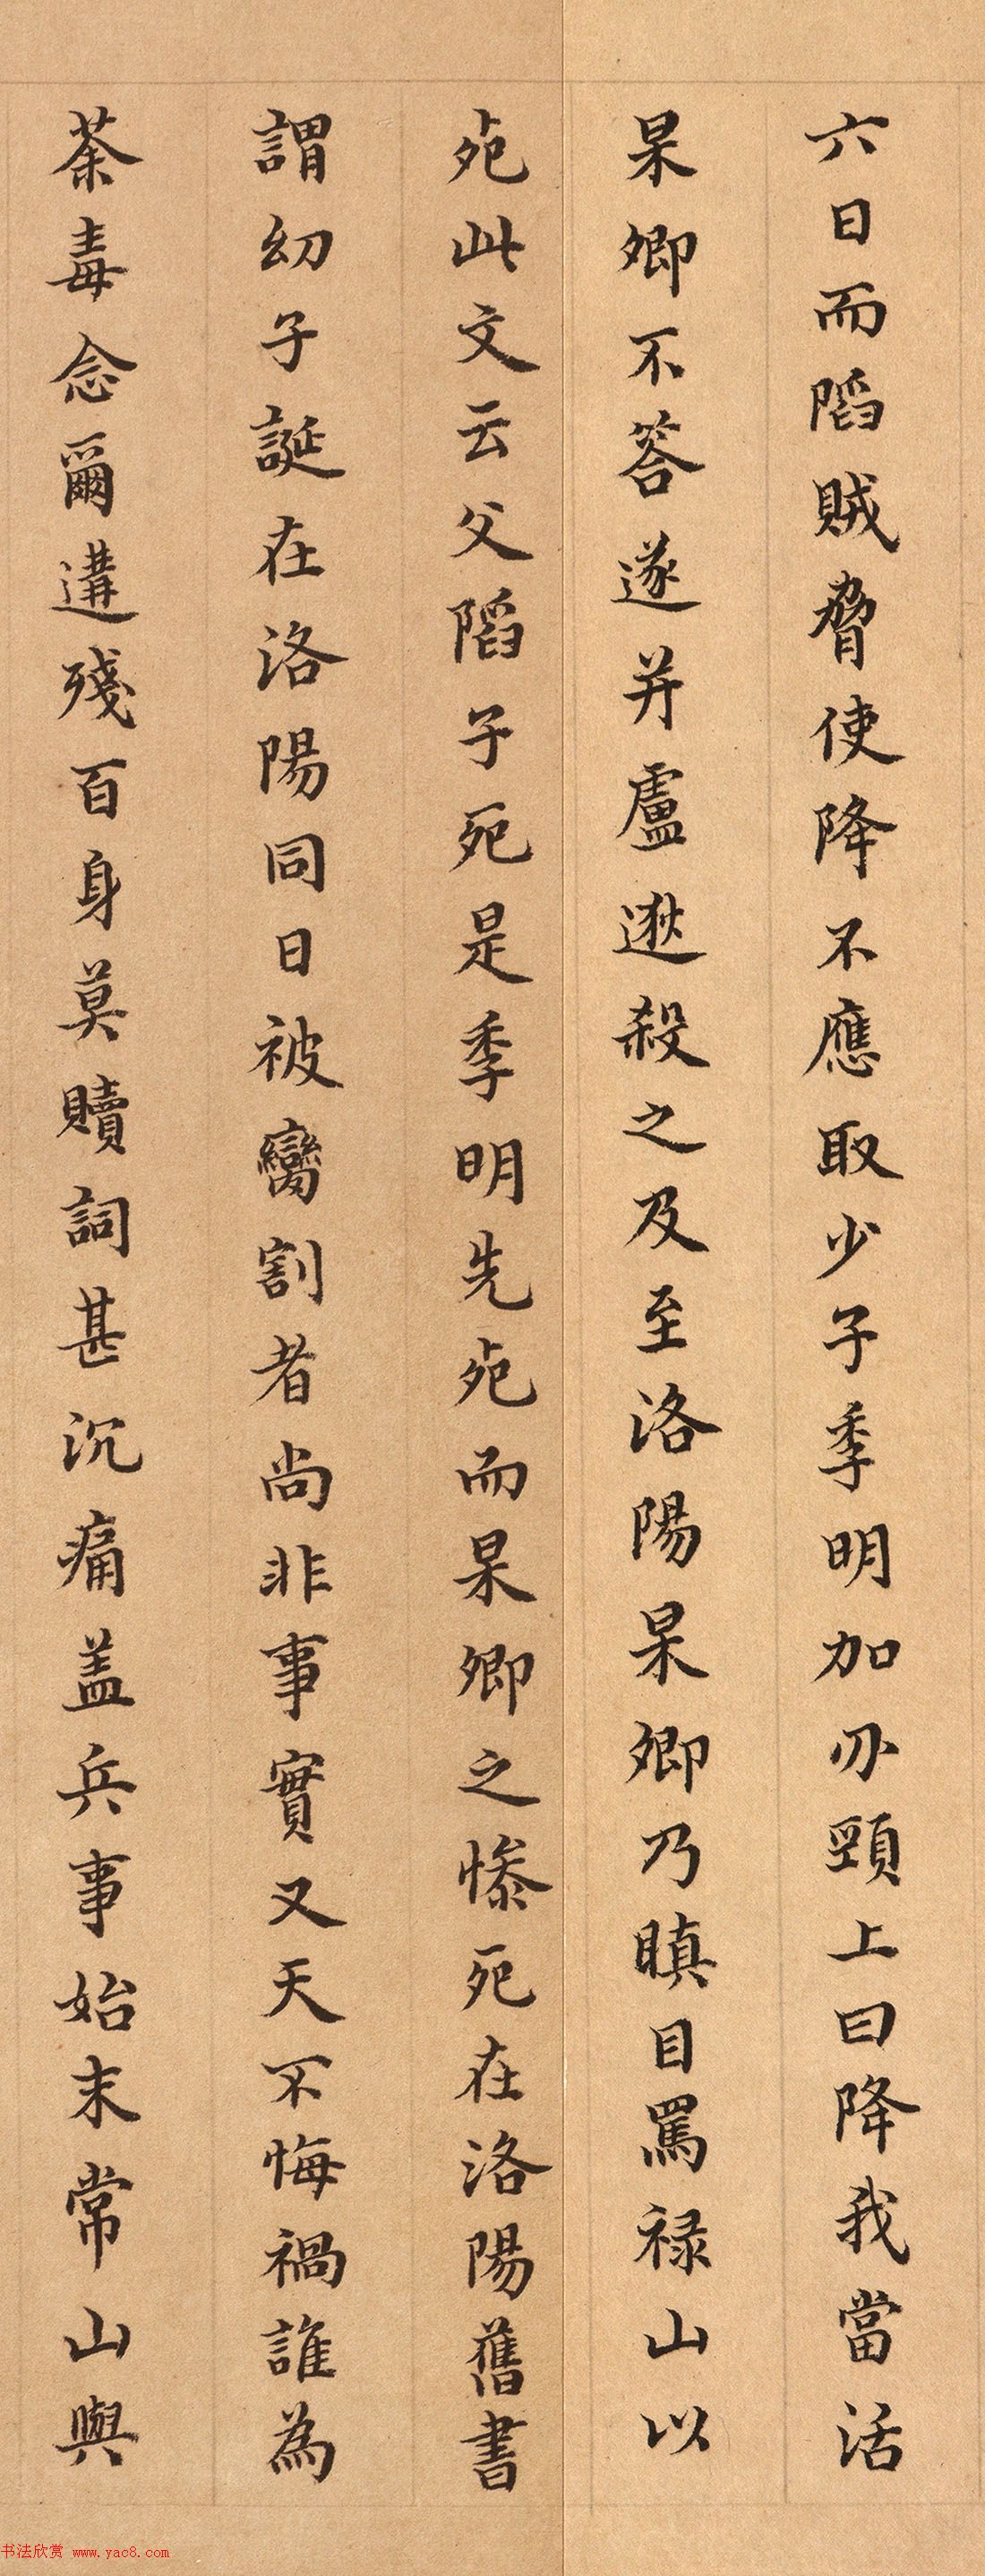 六日而陷賊脅使降不應取少子季明加刃頸上曰降我當活
杲卿不答遂并盧逖殺之及至洛陽杲卿乃瞋目罵禄山以
死此文云父陷子死是季明先死而杲卿之慘死在洛陽舊書
謂幼子誕在洛陽同日被臠割者尚非事實又天不悔禍誰為
荼毒念爾遘殘百身莫贖詞甚沉痛盖兵事始末常山與
书法欣赏 www.yac8.com